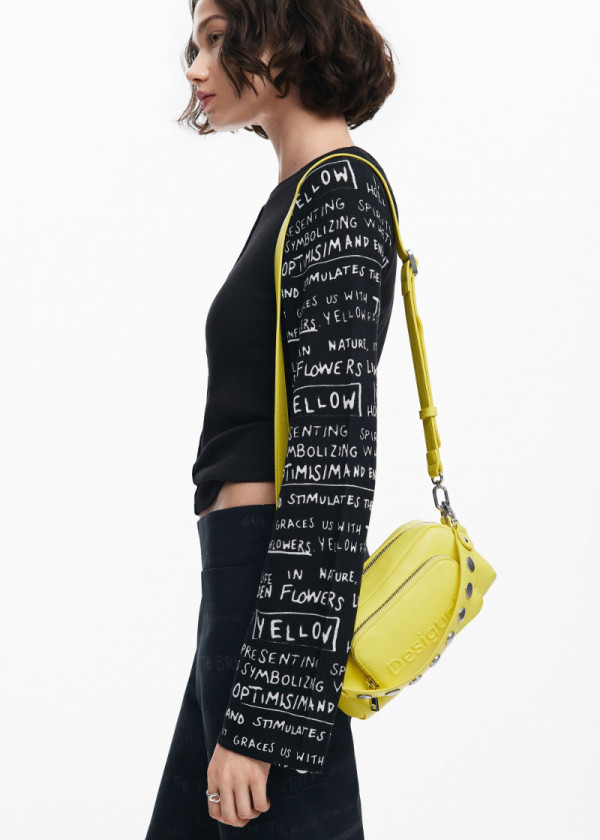 ELLOW
ESENTING SPIRIT
SYMBOLIZING W
OPTIMISIM AND EN
AND STIMULATES THE
GRACES US WITH
ERS. YELLOW
IN NATURE,
FLOWERS LI
ELLOW
SENTING SPI
MBOLIZING W
OPTIMISIM AND EN
AND STIMULATES T
GRACES US WITH
FLOWERS. YELLOW
LIFE IN NATURE,
EN FLOWERS L
YELLOW
PRESENTING SP
SYMBOLIZING W
OPTIMISIM AND
AND STIMULATES
GRACES US WITH
Desigu